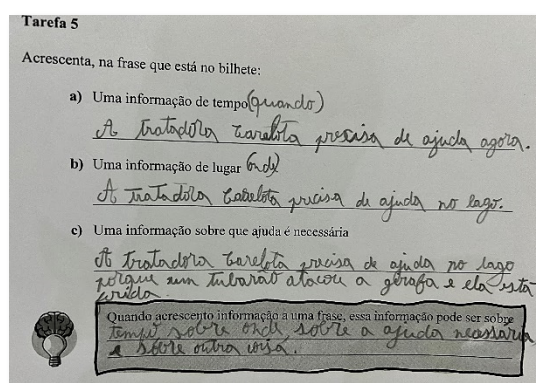 Tarefa 5
Acrescenta, na frase que está no bilhete:
a) Uma informação de tempo (quando)
A tratadora Carelota precisa de ajuda agora.
b) Uma informação de lugar (onde)
A tratadora Carelota precisa de ajuda no lago.
c) Uma informação sobre que ajuda é necessária
A tratadora Carelota precisa de ajuda no lago
porque um tubarão atacou a girafa e ela está
Quando acrescento informação a uma frase, essa informação pode ser sobre
tempo sobre onde, sobre a ajuda necessária
e sobre outra coisa.